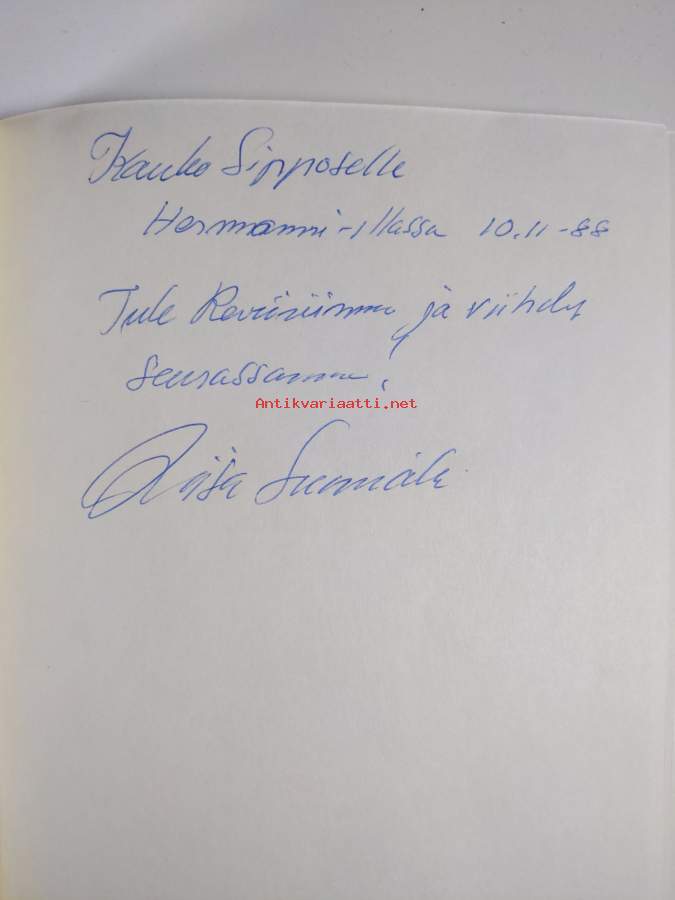 Kauko Sipposelle
Hermanni-illassa 10.11-88
Tule ja viihdy
seurassamme!
Antikvariaatti.net